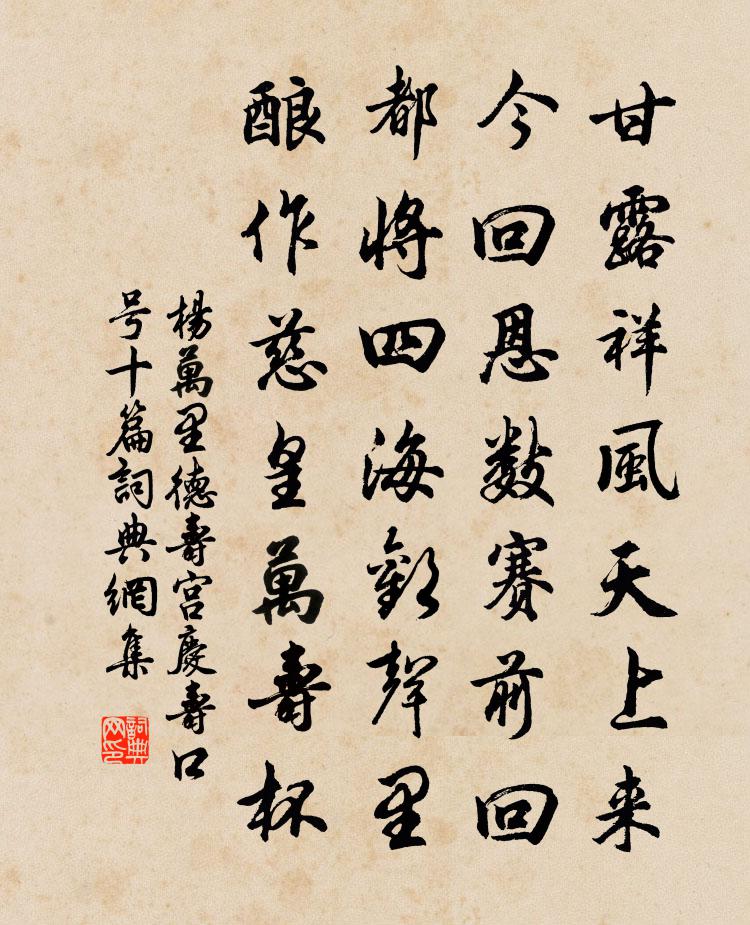 甘露祥風天上来
今回恩数赛前回
都將四海歡聲里
酿作慈皇萬壽杯
楊萬里德壽宫慶壽口
号十篇詞典網集
詞典网印